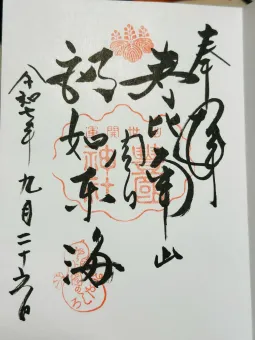 奉拝
寿比南山
福如東海
令和七年 九月二十六日
出世開運
豐國神社